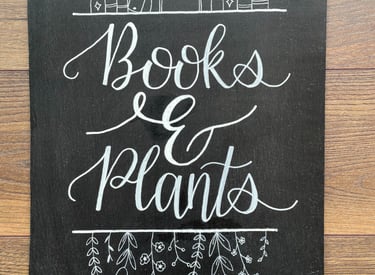 Books
&
Plants